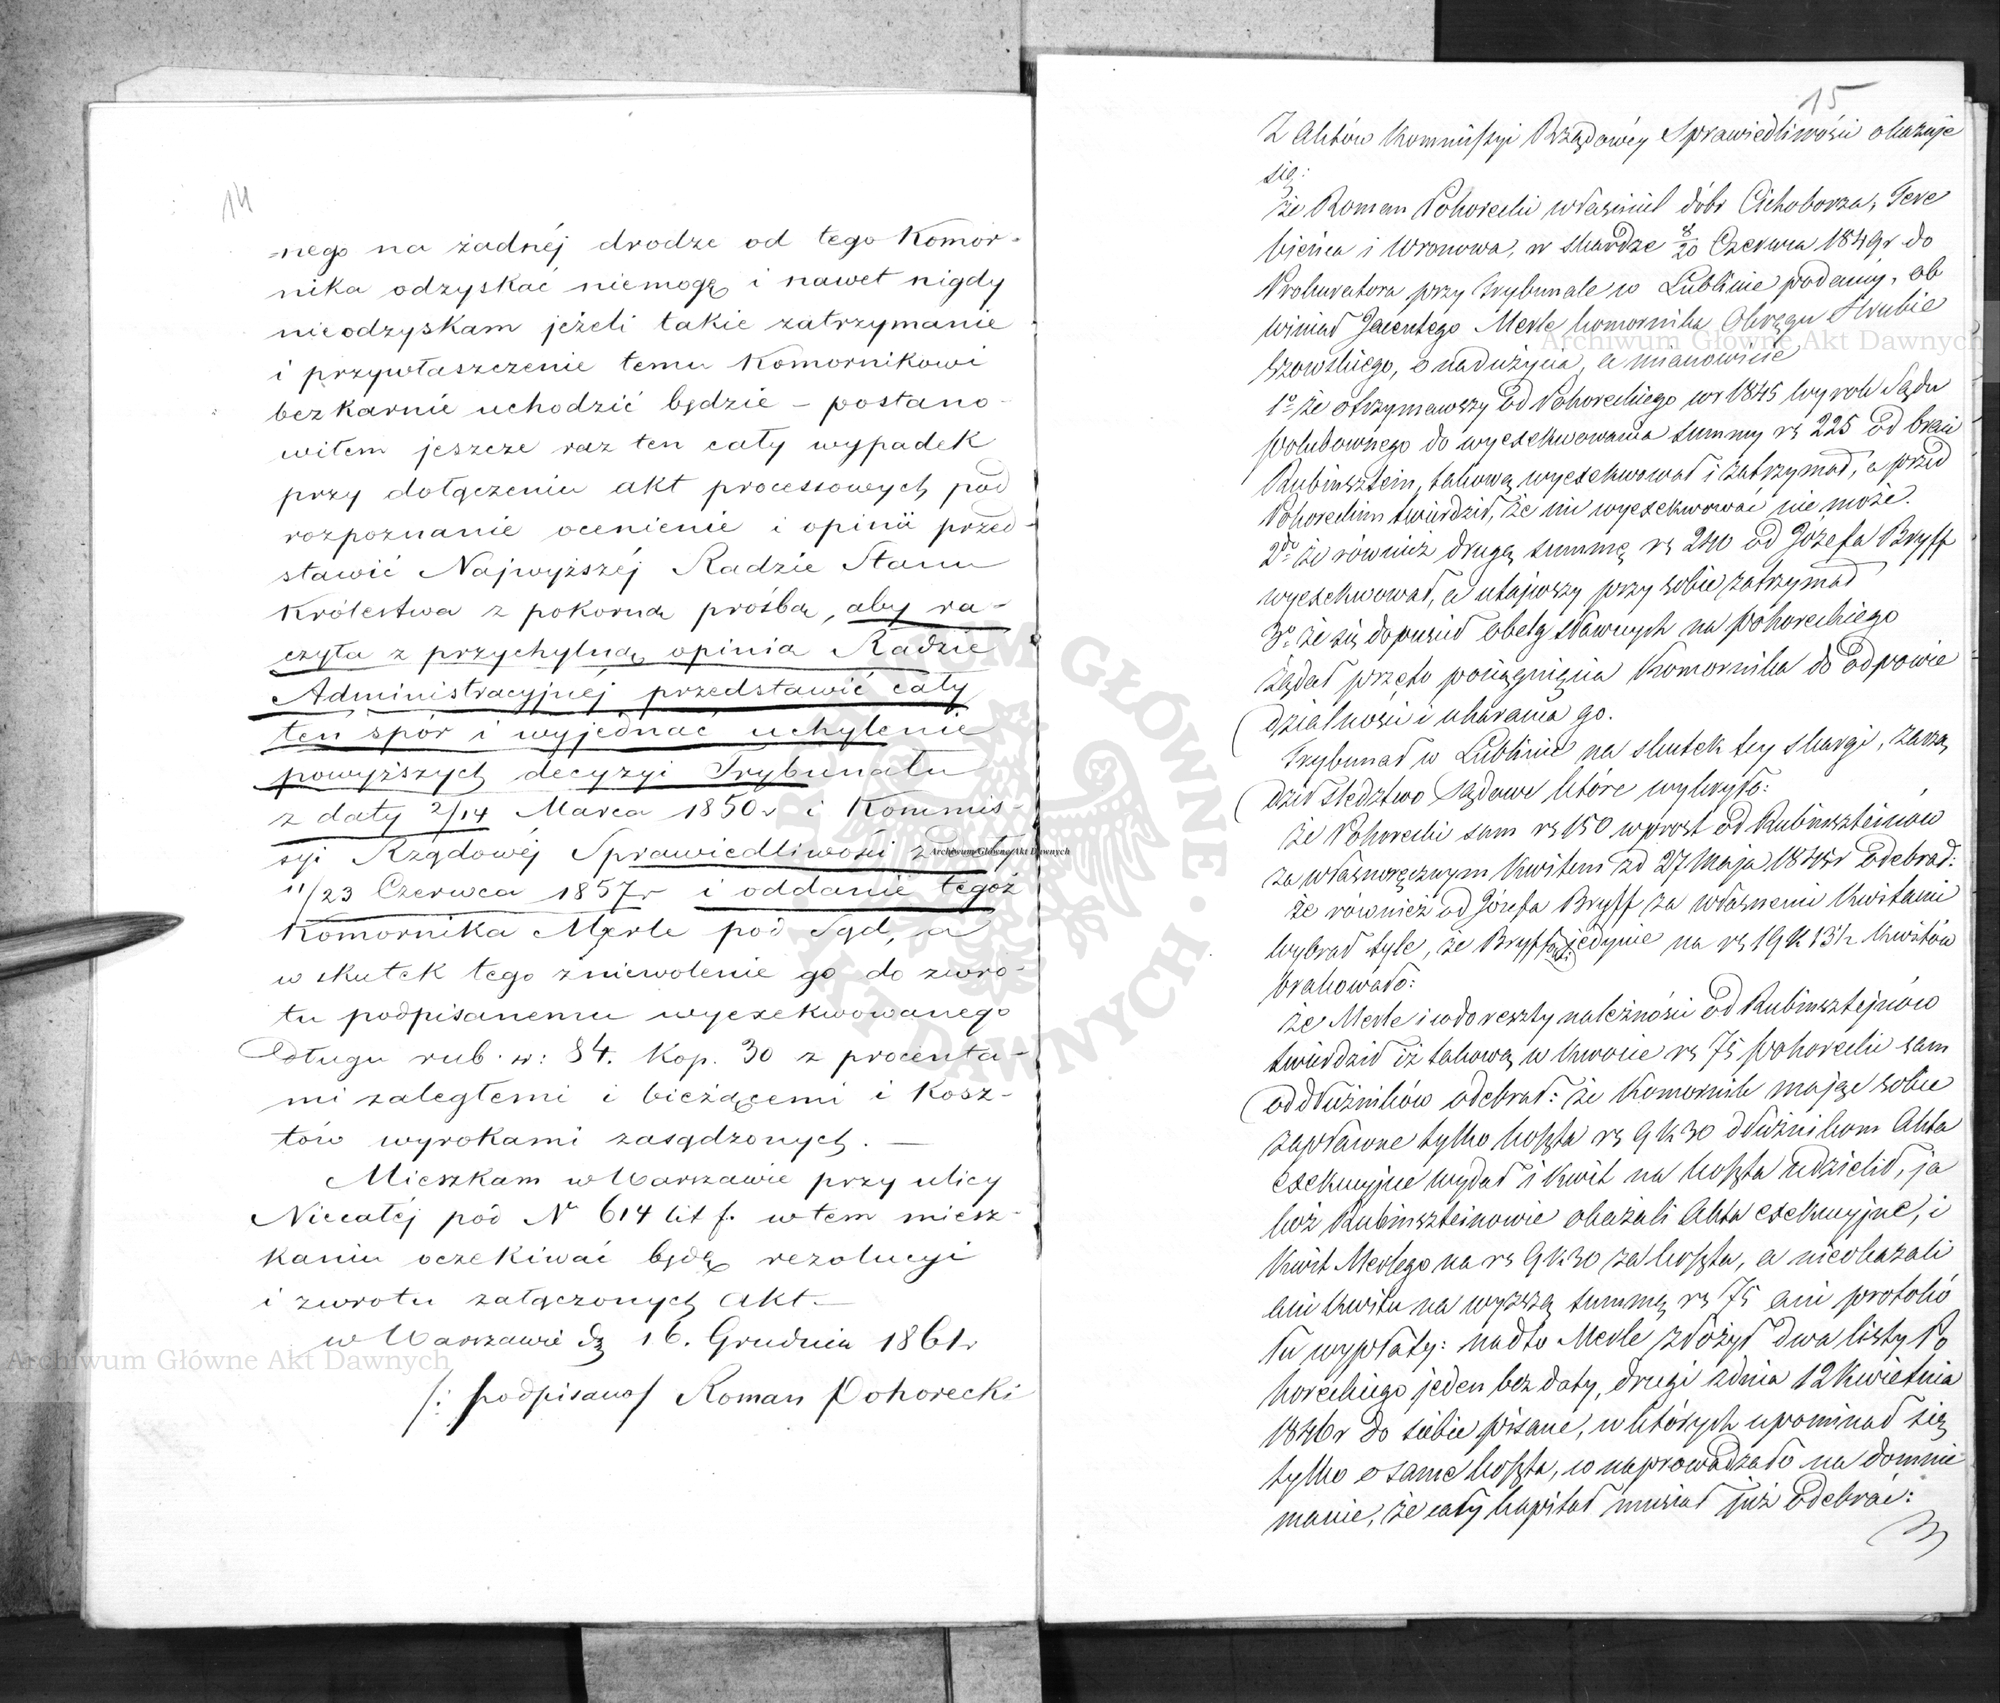 14
-nego na żadnéj drodze od tego Komor-
nika odzyskać niemogę i nawet nigdy
nieodzyskam jeżeli takie zatrzymanie
i przywłaszczenie temu Komornikowi
bezkarnie uchodzić będzie – postano-
wiłem jeszcze raz ten cały wypadek
przy dołączeniu akt processowych pod
rozpoznanie ocenienie i opinii przed-
stawić Najwyższéj Radzie Stanu
Królestwa z pokorną prośbą, aby ra-
czyła z przychylną opinia Radzie
Administracyjnéj przedstawić cały
ten spór i wyjednać uchylenie
powyższych decyzyi Trybunału
z daty 2/14 Marca 1850 r i Kommis-
syi Rządowéj Sprawiedliwości z daty
11/23 Czerwca 1857 r i oddanie tegoż
Komornika Merle pod Sąd, a
w skutek tego zniewolenie go do zwro-
tu podpisanemu wyexekwowanego
Długu rub. sr: 84. Kop. 30 z procenta-
mi zaległemi i bieżącemi i Kosz-
tów wyrokami zasądzonych. —
Mieszkam w Warszawie przy ulicy
Niecałéj pód No 614 lit f. w tem miesz-
kaniu oczekiwać będę rezolucyi
i zwrotu załączonych akt. —
w Warszawie d. 16. Grudnia 1861 r
/: podpisano/ Roman Pohorecki
15
Z Aktów Kommissyi Rządowéy Sprawiedliwości okazuje
się:
że Roman Pohorecki właściciel dóbr Cichoborza, Tere
bieńca i Wronowa, w skardze 8/20 Czerwca 1849 r do
Prokuratora przy Trybunale w Lublinie podanéy, ob
winiał Jacentego Merle Komornika Okręgu Hrubie
szowskiego, o nadużycia, a mianowicie
1o że otrzymawszy od Pohoreckiego w r 1845 wyrok Sądu
polubownego do wyexekwowania summy rs 225 od braci
Rubinsztein, takową wyexekwował i zatrzymał, a przed
Pohoreckim twierdził, że nic wyexekwować nie może.
2do że również drugą summę rs 240 od Józefa Bryff
wyexekwował, a utaiwszy przy sobie zatrzymał
3o że się dopuścił obelg słownych na Pohoreckiego
żądał przeto pociągnięcia Komornika do odpowie
dzialności i ukarania go.
Trybunał w Lublinie na skutek tey skargi, zarzą
dził śledztwo Sądowe które wykryło:
że Pohorecki sam rs 150 wprost od Rubinszteinów
za własnoręcznym Kwitem zd 27 Maja 1845 r odebrał:
że również od Józefa Bryff za własnemi Kwitami
wybrał tyle, że Bryffowi jedynie na rs 19 k 13 1/2 Kwitów
brakowało:
że Merle i co do reszty należności od Rubinsztejnów
twierdził iż takową w kwocie rs 75 Pohorecki sam
od dłużników odebrał: że Komornik mając sobie
zapłacone tylko koszta rs 9 k 30 dłużnikom Akta
exekucyjne wydał i kwit na koszta udzielił, ja
koż Rubinszteinowie okazali Akta exekucyjne, i
Kwit Merlego na rs 9 k 30 za koszta, a nieokazali
ani kwitu na wyższą summę rs 75 ani protokó
łu wypłaty: nadto Merle złożył dwa listy Po
horeckiego jeden bez daty, drugi z dnia 12 Kwietnia
1846 r do siebie pisane, w których upominał się
tylko o same koszta, co naprowadzało na domnie
manie, że cały kapitał musiał już odebrać:
Archiwum Główne Akt Dawnych
Archiwum Główne Akt Dawnych
Archiwum Główne Akt Dawnych
ARCHIWUM GŁÓWNE AKT DAWNYCH